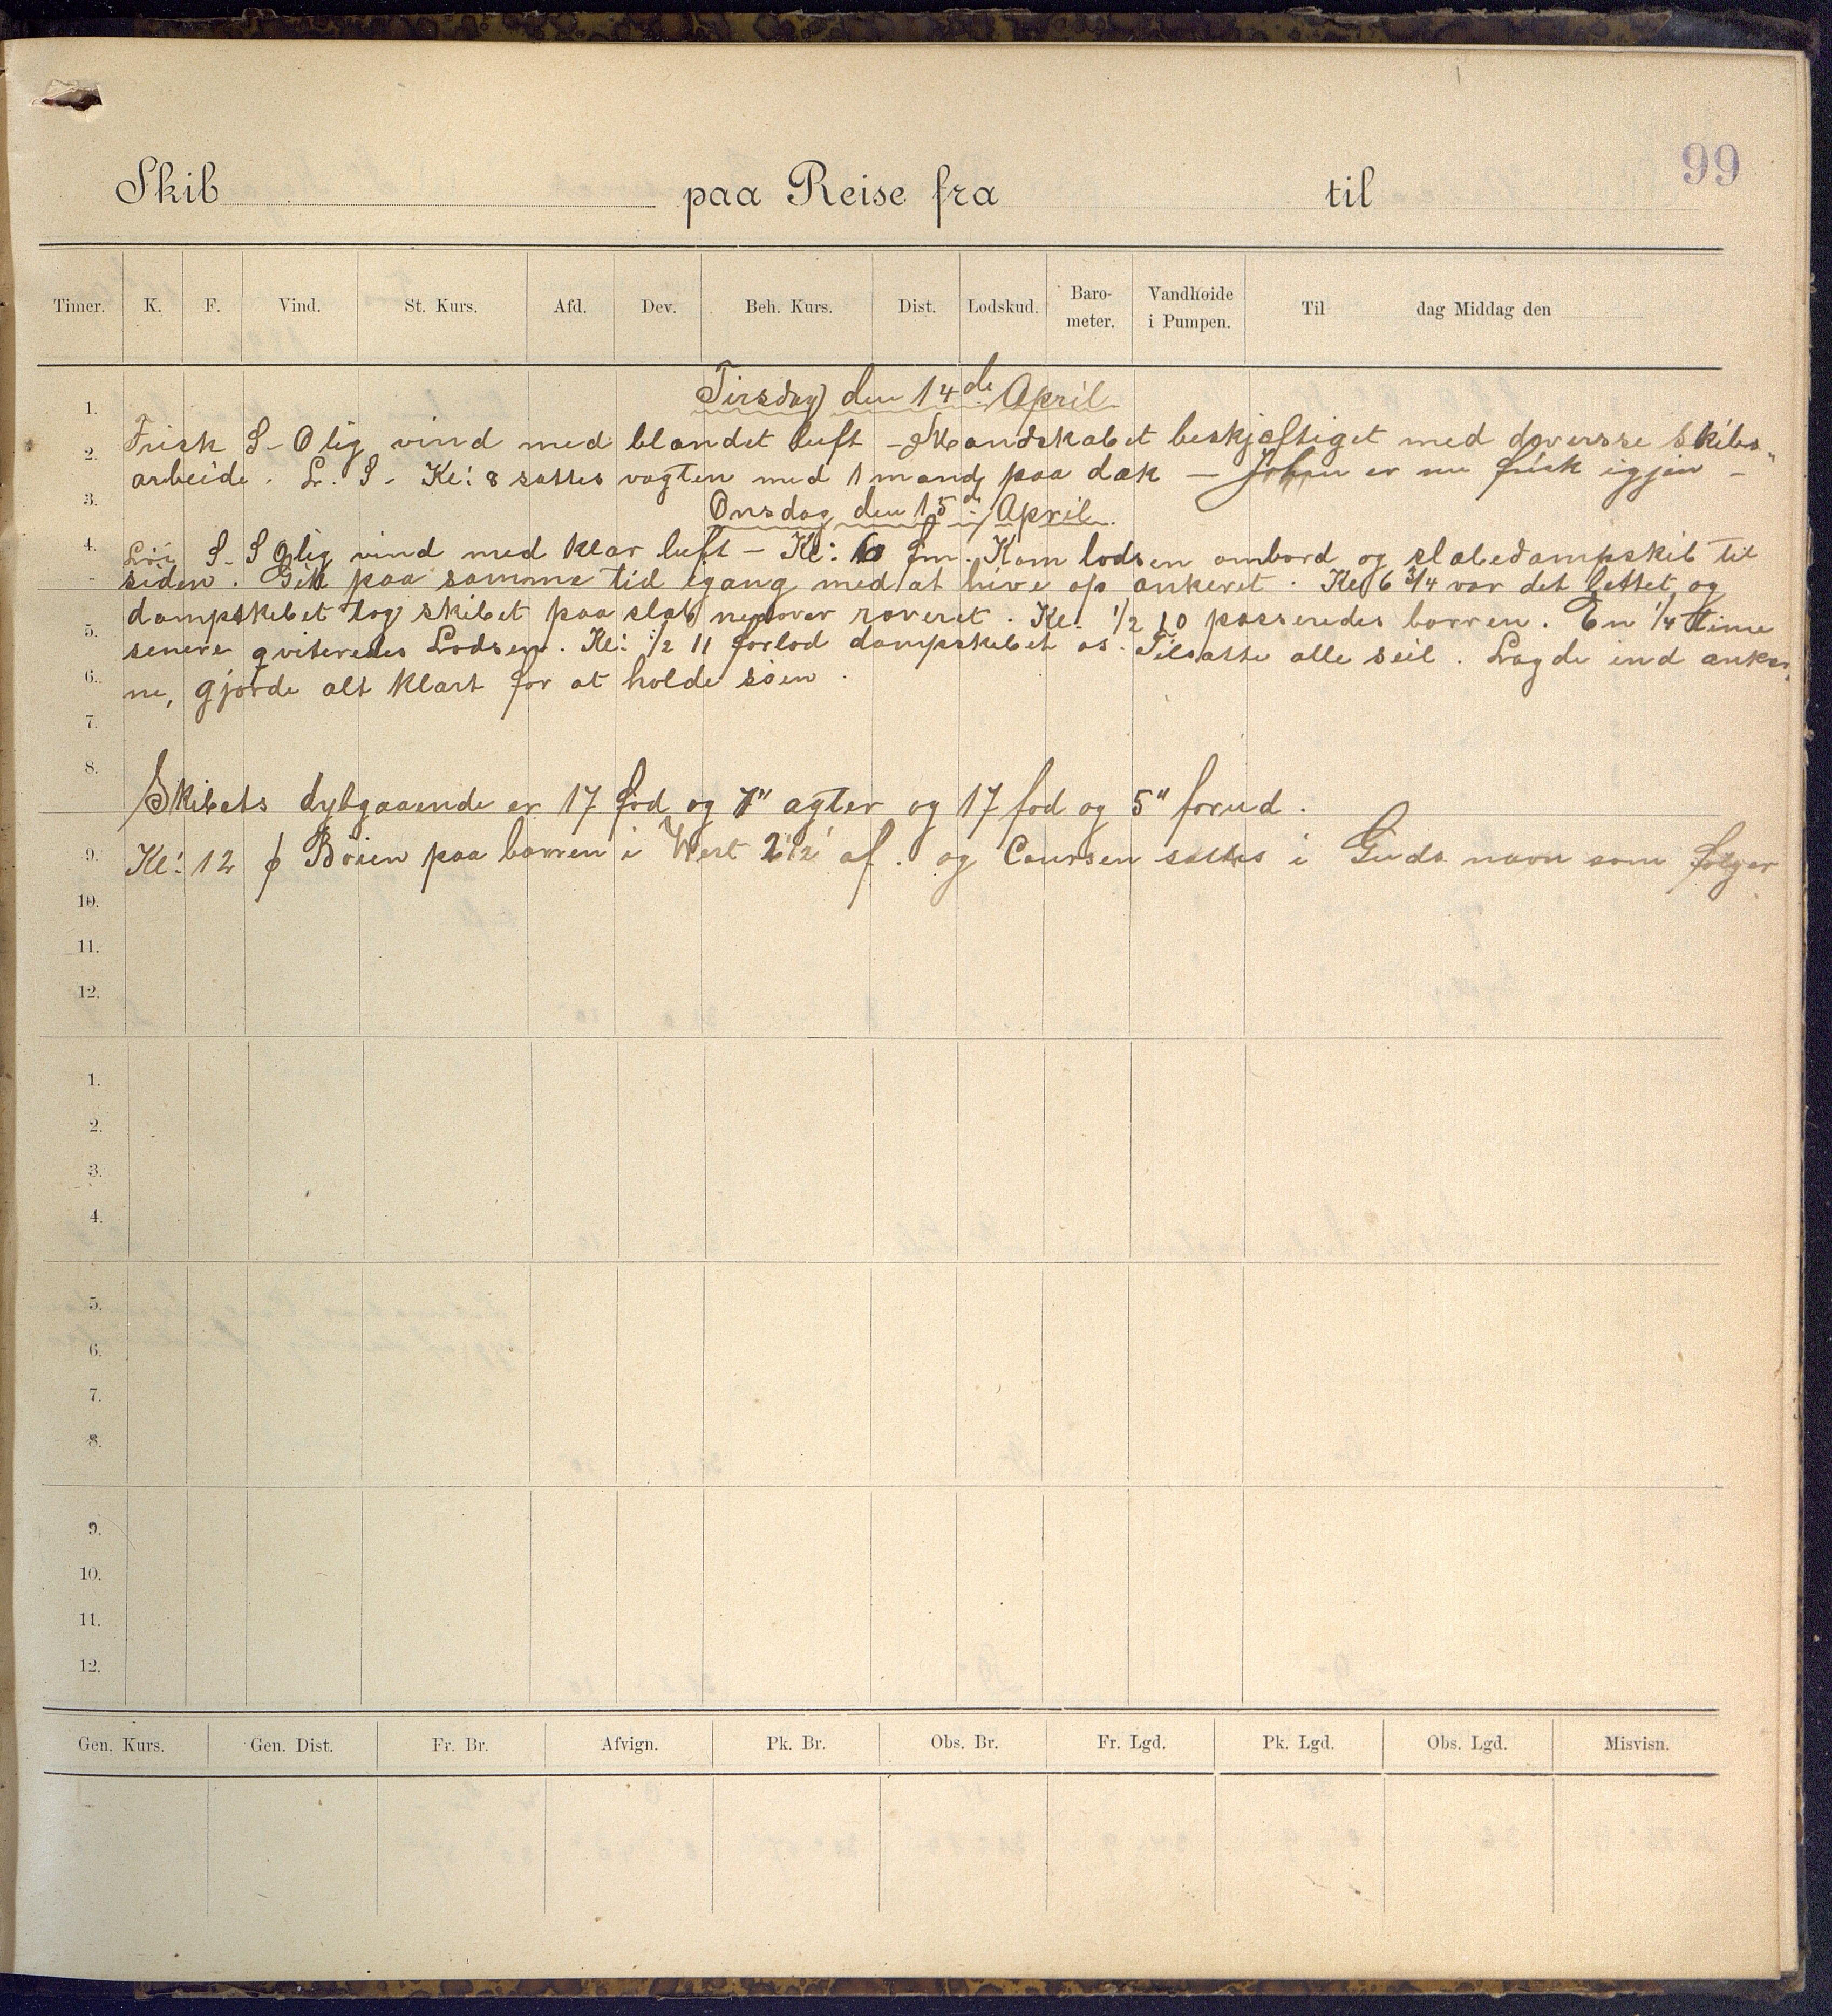 99
Skib paa Reise fra til
Timer. K. F. Vind. St. Kurs. Afd. Dev. Beh. Kurs. Dist. Lodskud. Baro-meter. Vandhøide i Pumpen. Til dag Middag den
Tirsdag den 14de April
Frisk S-Olig vind med blandet luft - Mandskabet beskjæftiget med diversse Skibs"
arbeide. L. S. Kl: 8 sattes vagten med 1 mand paa dæk - Johan er nu frisk igjen -
Onsdag den 15de April.
Løi S-SOlig vind med klar luft - Kl: 6 fm. Kom lodsen ombord og slæbedampskib til
siden. Gik paa samme tid igang med at hive op ankeret. Kl 6 3/4 var det lettet og
dampskibet tog skibet paa slæb nedover roveret. Kl. 1/2 10 passeredes barren. En 1/4 time
senere qviteredes Lodsen. Kl: 1/2 11 forlod dampskibet os. Tilsatte alle seil. Lagde ind anker,
ne, gjorde alt klart for at holde søen.
Skibets dybgaaende er 17 fod og 7" agter og 17 fod og 5" forud.
Kl: 12 Bøien paa barren i West 2 1/2' af. og Coursen sattes i Guds navn som følger
1.
2.
3.
4.
5.
6.
7.
8.
9.
10.
11.
12.
1.
2.
3.
4.
5.
6.
7.
8.
9.
10.
11.
12.
Gen. Kurs. Gen. Dist. Fr. Br. Afvign. Pk. Br. Obs. Br. Fr. Lgd. Pk. Lgd. Obs. Lgd. Misvisn.